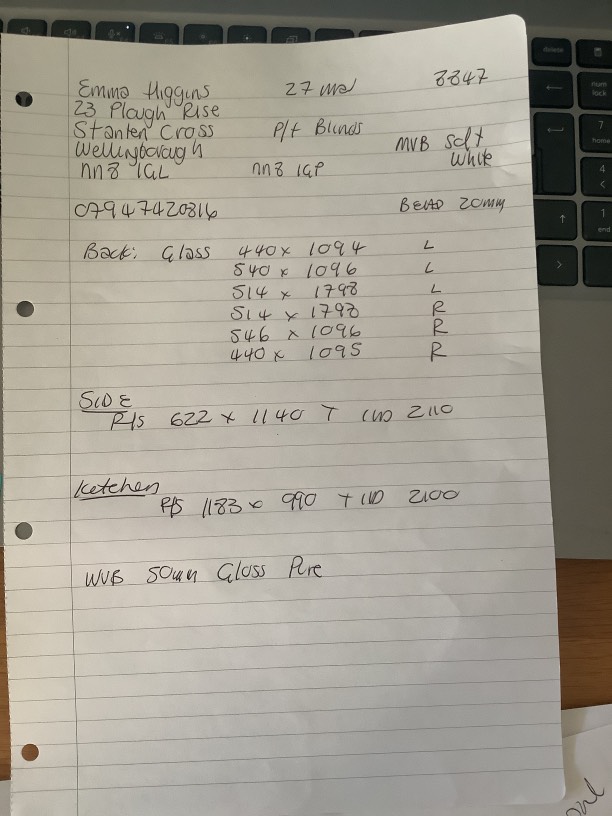 Emma Higgins 27 3347
23 Plough Rise
Stanten Cross P/t Blinds
Wellingborough MVB Soft White
NN8 1GL NN8 1GP
07947420816 BEAD 20mm
Back: Glass 440 x 1094 L
540 x 1096 L
514 x 1798 L
514 x 1798 R
546 x 1096 R
440 x 1095 R
SIDE
R/S 622 x 1140 T 2110
Ketchen
1183 x 990 T 2100
WVB 50mm Gloss Pure
delete
num lock
7 home
4
1 end